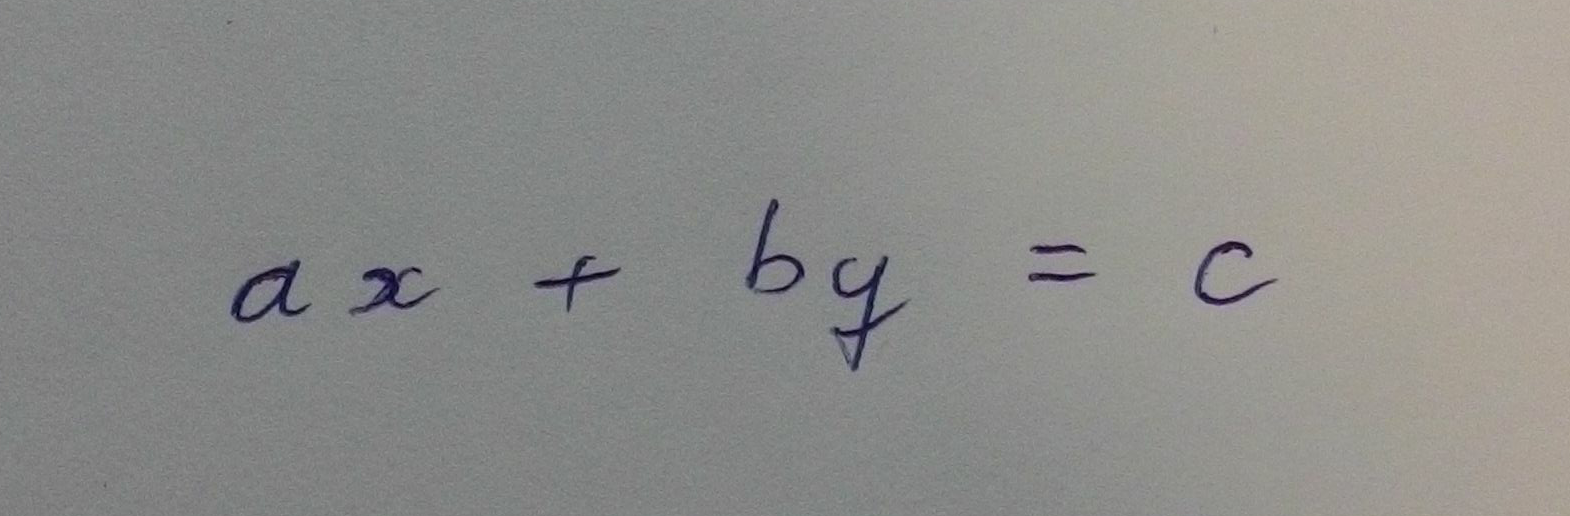 ax + by = c